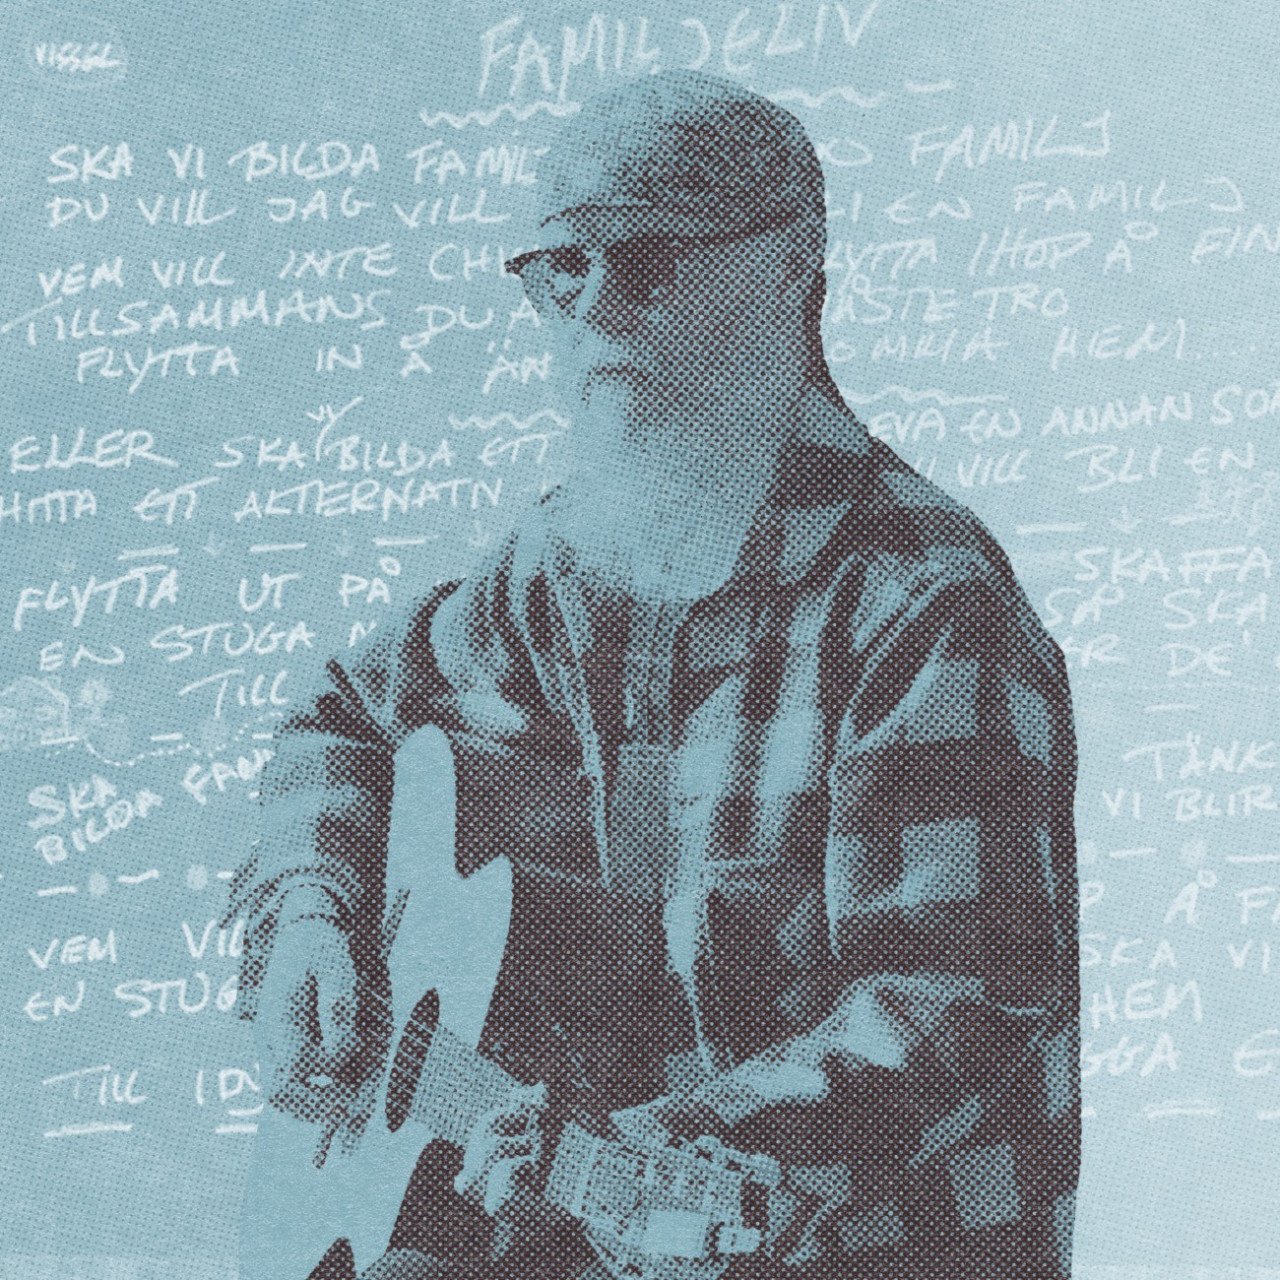 VISSEL
FAMILJELIV
SKA VI BILDA FAMIL O FAMILJ
DU VILL JAG VILL LI EN FAMILJ
VEM VILL INTE CH LYTTA IHOP Å FIN
TILLSAMMANS DU Ä ÅSTE TRO
FLYTTA IN Å ÄN HEM.....
ELLER SKA VI BILDA ETT EVA EN ANNAN SO
HITTA ETT ALTERNATIV VI VILL BLI EN
FLYTTA UT PÅ SKAFFA
EN STUGA N SÅ SKA
TILL ER DE
SKA TÄNK
BILDA FAM VI BLIR
VEM VIL P Å F
EN STUG SKA VI
HEM
TILL ID GGA E